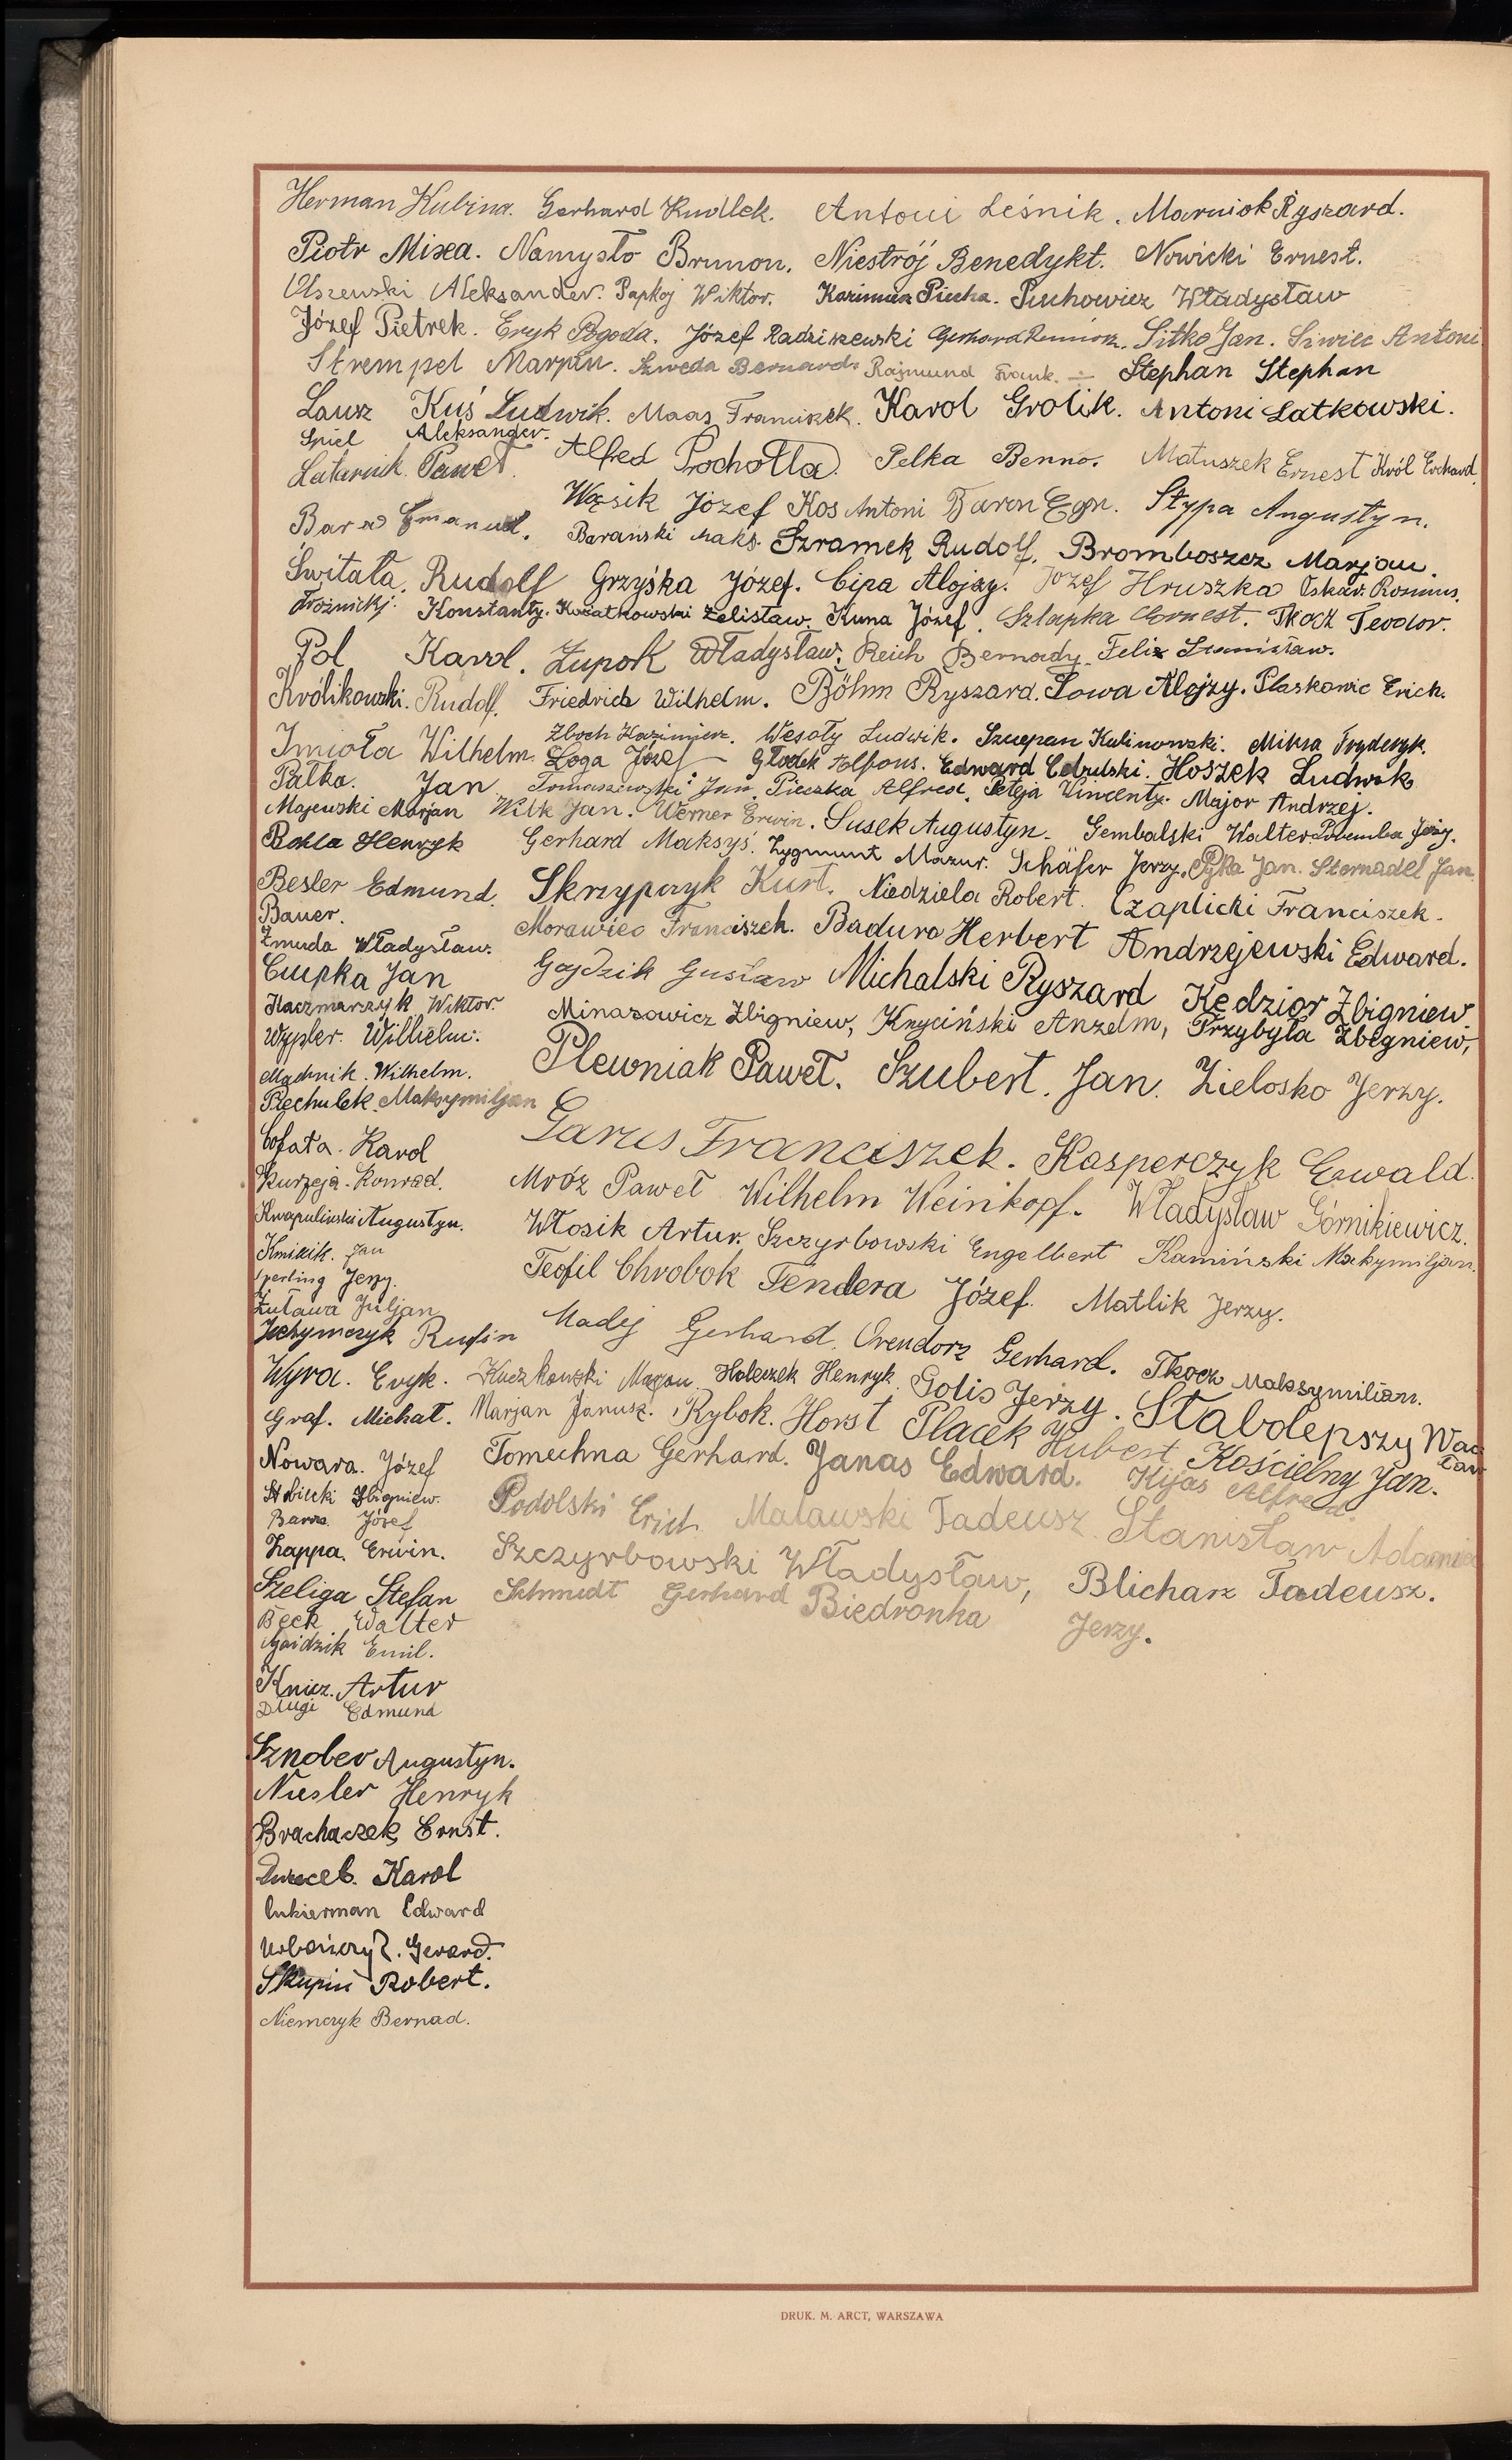 Herman Kubina. Gerhard Kudlek. Antoni Leśnik. Marniok Ryszard.
Piotr Mixa. Namysło Brunon. Niestrój Benedykt. Nowicki Ernest.
Olszewski Aleksander. Papkoj Wiktor. Kazimierz Piecha. Puchowicz Władysław
Józef Pietrek. Eryk Pogoda. Józef Radziszewski Gerhard Sitko Jan. Siwiec Antoni
Strempel Marjan. Szweda Bernard. Rajmund Frank. Stephan Stephan
Laux Kuś Ludwik. Maas Franciszek. Karol Grolik. Antoni Latkowski.
Spiel Aleksander.
Latarnik Paweł. Alfred Prochotta. Pelka Benno. Matuszek Ernest Król Erhard.
Wąsik Józef Kos Antoni Baron Egon. Stypa Augustyn.
Emanuel. Barański Maks. Szramek Rudolf. Bromboszcz Marjan.
Świtała Rudolf Grzyśka Józef. Cipa Alojzy. Józef Hruszka Oskar.
Konstanty. Kwiatkowski Zelisław. Kuna Józef. Szlapka Ernest. Tkocz Teodor.
Pol Karol. Zupok Władysław. Reich Felix Stanisław.
Królikowski. Rudolf. Friedrich Wilhelm. Böhm Ryszard. Sowa Alojzy. Erich.
Imioła Wilhelm. Zboch Kazimierz. Wesoły Ludwik. Szczepan Kalinowski. Miksa Fryderyk.
Loga Józef Głodek Alfons. Edward Cebulski. Hoszek Ludwik
Pałka. Jan. Tomaszewski Jan. Pieczka Alfred. Peteja Wincenty. Major Andrzej.
Majewski Marjan Wilk Jan. Werner Erwin. Susek Augustyn. Gembalski Walter. Poremba Jerzy.
Henryk Gerhard Maksyś. Zygmunt Mazur. Schäfer Jerzy. Pyka Jan. Sternadel Jan
Besler Edmund. Skrzypczyk Kurt. Niedziela Robert. Czaplicki Franciszek.
Bauer.
Żmuda Władysław. Morawiec Franciszek. Badura Herbert Andrzejewski Edward.
Ciupka Jan Gajdzik Gustaw Michalski Ryszard Kędzior Zbigniew
Kaczmarczyk Wiktor. Minasowicz Zbigniew, Knyciński Anzelm, Przybyła Zbigniew,
Wypler. Wilhelm.
Machnik. Wilhelm. Plewniak Paweł. Szubert. Jan. Zielosko Jerzy.
Piechulek. Maksymiljan
Cofała. Karol Garus Franciszek. Kasperczyk Ewald.
Kurzeja. Konrad. Mróz Paweł Wilhelm Weinkopf. Władysław Górnikiewicz.
Kwapuliński Augustyn. Włosik Artur. Szczyrbowski Engelbert Kamiński Maksymiljan.
Kmicik. Jan
Sperling Jerzy. Teofil Chrobok Fendera Józef. Matlik Jerzy.
Żuława Juljan
Jochymczyk Rufin Madej Gerhard. Orendorz Gerhard. Tkocz Maksymilian.
Wyra. Eryk. Kuczkowski Marjan Holeczek Henryk. Golis Jerzy. Stabdepszy Wacław
Graf. Michał. Marjan Janusz. Rybok. Horst Placek Hubert Kościelny Jan.
Nowara. Józef Tomechna Gerhard. Janas Edward. Kijas Alfred.
Zbigniew. Podolski Erich. Malawski Tadeusz. Stanisław
Józef
Zappa. Erwin. Szczyrbowski Władysław, Blicharz Tadeusz.
Szeliga Stefan Schmidt Gerhard Biedronka Jerzy.
Beck Walter
Gaidzik Emil.
Knicz. Artur
Długi Edmund
Augustyn.
Niesler Henryk
Brachaczek Ernst.
Karol
Cukierman Edward
Urbańczyk. Gerard.
Skupin Robert.
Niemczyk Bernad.
DRUK. M. ARCT, WARSZAWA